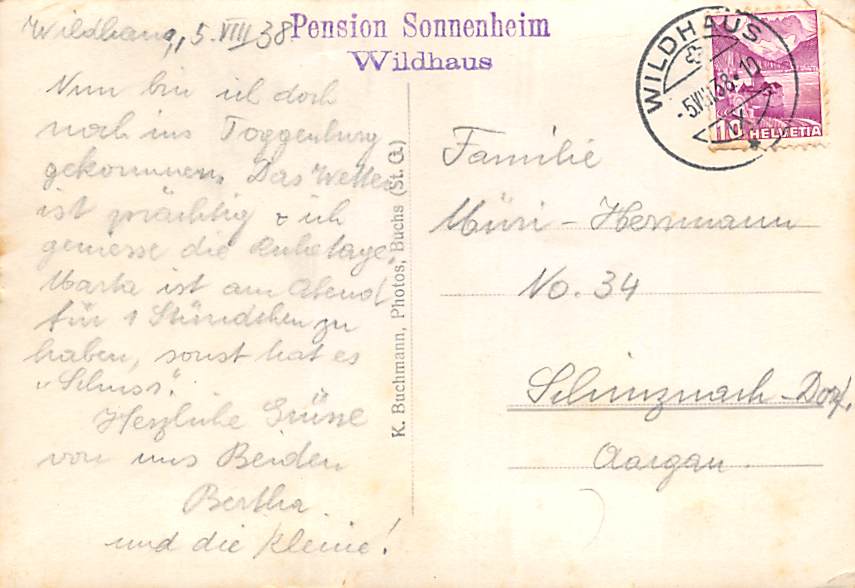 Wildhaus, 5. VIII 38.
Pension Sonnenheim
Wildhaus
Nun bin ich doch
noch ins Toggenburg
gekommen. Das Wetter
ist prächtig & ich
geniesse die Ruhetage.
Marta ist am Abend
für 1 Stündchen zu
haben, sonst hat es
"Schuss".
Herzliche Grüsse
von uns Beiden
Bertha
und die Kleine!
K. Buchmann, Photos, Buchs (St. G.)
WILDHAUS
-5.VIII.38.
10 HELVETIA
Familie
Müri-Herrmann
No. 34
Schinznach-Dorf.
Aargau.